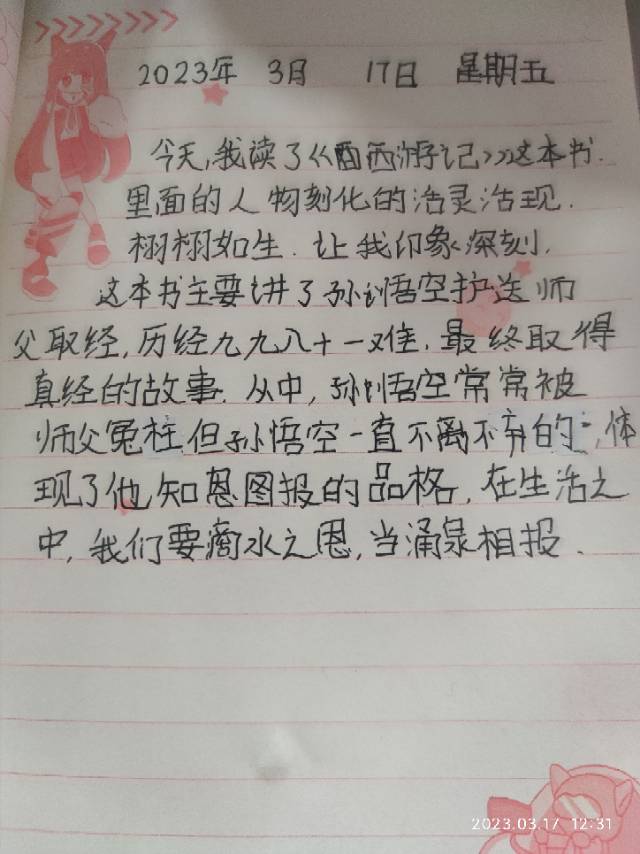 2023年 3月 17日 星期五
今天,我读了《西西游记》这本书.
里面的人物刻化的活灵活现.
栩栩如生.让我印象深刻.
这本书主要讲了孙悟空护送师
父取经,历经九九八十一难.最终取得
真经的故事.从中,孙悟空常常被
师父冤枉.但孙悟空一直不离不弃的,体
现了他知恩图报的品格.在生活之
中,我们要滴水之恩,当涌泉相报.
2023.03.17 12:31